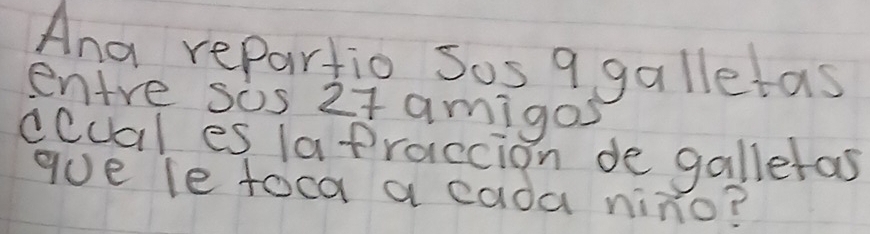 Ana repartio sus 9 galletas
entre sus 27 amigos
¿cual es la fracción de galletas
que le toca a cada niño?